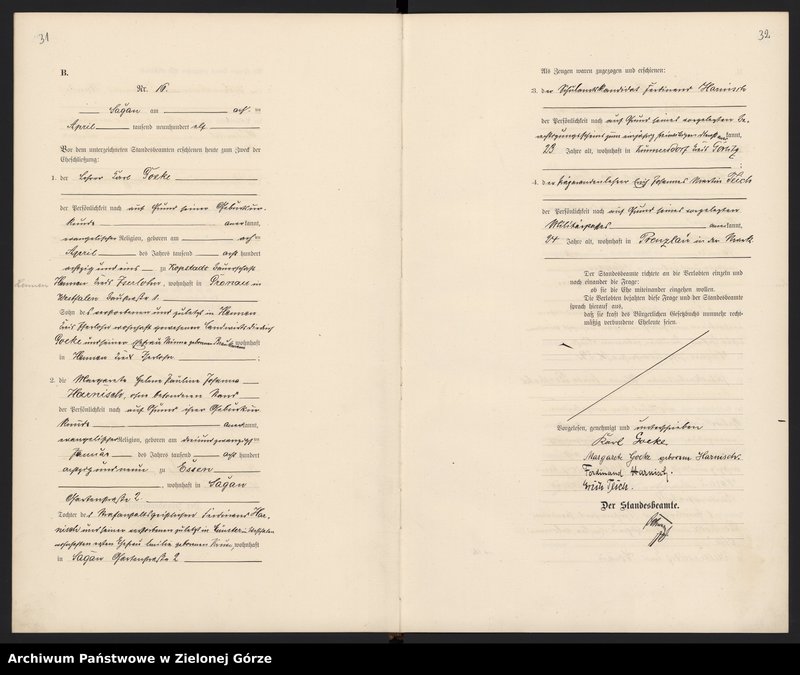 31
B.
Nr. 18.
Sagan am acht ten
April tausend neunhundert elf
Vor dem unterzeichneten Standesbeamten erschienen heute zum Zweck der
Eheschließung:
1. der Lehrer Karl Goeke
der Persönlichkeit nach auf Grund seiner Geburtsur-
kunde anerkannt,
evangelischer Religion, geboren am acht ten
April des Jahres tausend acht hundert
achtzig und eins zu
Hennen
Hennen Kreis Iserlohn, wohnhaft in Gronau in
Westfalen
Sohn des verstorbenen und zuletzt in Hennen
Kreis Iserlohn wohnhaft gewesenen Landwirts Diedrich
Goeke und seiner Ehefrau Minna geborenen wohnhaft
in Hennen Kreis Iserlohn ;
2. die Margarete Helene Pauline Johanna
Harnisch, ohne besonderen Stand
der Persönlichkeit nach auf Grund ihrer Geburtsur-
kunde anerkannt,
evangelischer Religion, geboren am dreiundzwanzigsten
Januar des Jahres tausend acht hundert
achtzig und neun zu Essen
, wohnhaft in Sagan
Gartenstraße 2.
Tochter des Strafanstaltsgeistlichen Ferdinand Har-
nisch und seiner verstorbenen zuletzt in
Ehefrau Emilie geborenen wohnhaft
in Sagan Gartenstraße 2
32
Als Zeugen waren zugezogen und erschienen:
3. der Schulamtskandidat Ferdinand Harnisch
der Persönlichkeit nach auf Grund seines vorgelegten Be-
rechtigungsscheins zum einjährig freiwilligen kannt,
23 Jahre alt, wohnhaft in Kunnersdorf Kreis Görlitz
;
4. der Präparandenlehrer Erich Johannes Martin
der Persönlichkeit nach auf Grund seines vorgelegten
Militärpasses anerkannt,
24 Jahre alt, wohnhaft in Prenzlau in der Mark
Der Standesbeamte richtete an die Verlobten einzeln und
nach einander die Frage:
ob sie die Ehe miteinander eingehen wollen.
Die Verlobten bejahten diese Frage und der Standesbeamte
sprach hierauf aus,
daß sie kraft des Bürgerlichen Gesetzbuchs nunmehr recht-
mäßig verbundene Eheleute seien.
Vorgelesen, genehmigt und unterschrieben
Karl Goeke
Margarete Goeke geborene Harnisch.
Ferdinand Harnisch.
Erich
Der Standesbeamte.
Archiwum Państwowe w Zielonej Górze